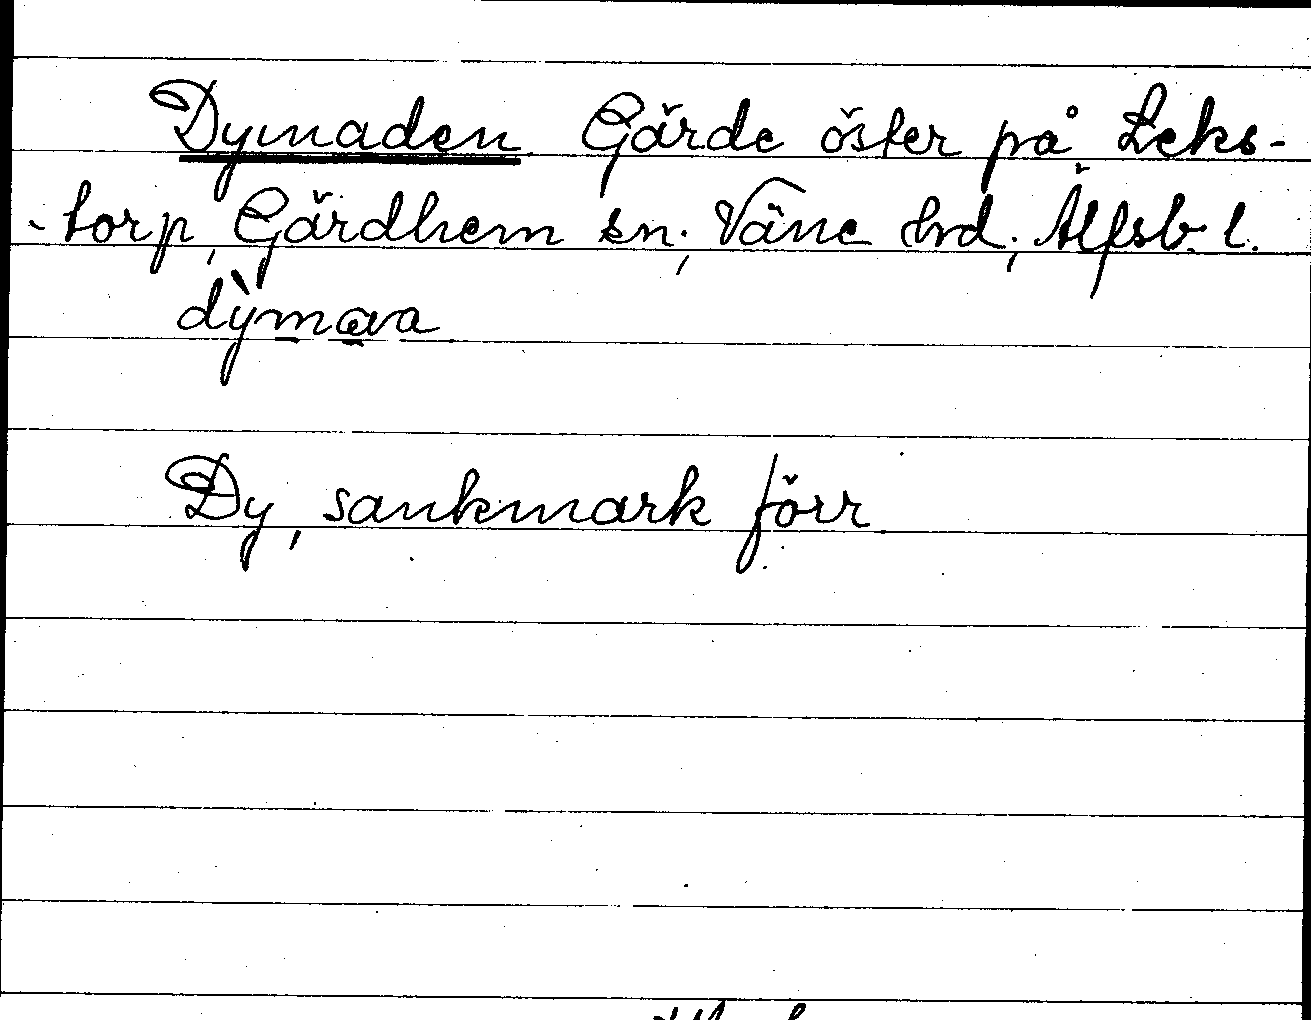 Dymaden Gärde öster på Leks-
-torp, Gärdhem sn; Väne hrd; Älfsb. l.
dỳmava
Dy, sankmark förr